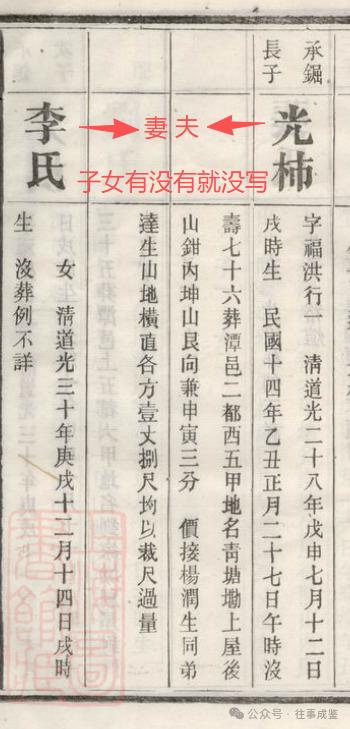 承鋸
長子
光柿
夫
妻
子女有没有就没写
字福洪行一 清道光二十八年戊申七月十二日
戌時生 民國十四年乙丑正月二十七日午時沒
壽七十六葬潭邑二都西五甲地名青塘墈上屋後
山鉗內坤山艮向兼申寅三分 價接楊潤生同弟
達生山地橫直各方壹丈捌尺均以裁尺過量
李氏
女 清道光三十年庚戌十二月十四日戌時
生 沒葬例不詳
公众号 · 往事成鉴